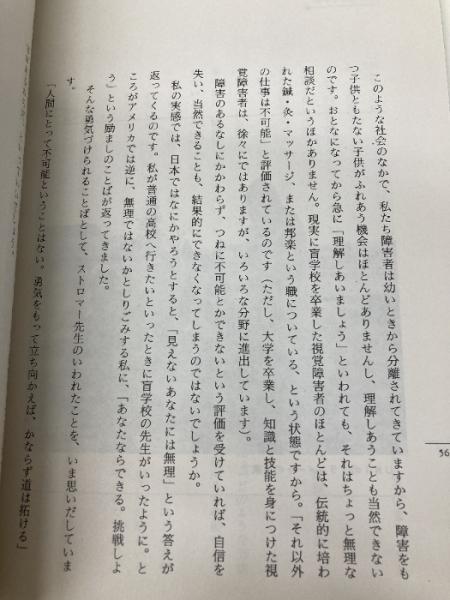 このような社会のなかで、私たち障害者は幼いときから分離されてきていますから、障害をも
つ子供ともたない子供がふれあう機会はほとんどありませんし、理解しあうことも当然できない
のです。おとなになってから急に「理解しあいましょう」といわれても、それはちょっと無理な
相談だというほかありません。現実に盲学校を卒業した視覚障害者のほとんどは、伝統的に培わ
れた鍼・灸・マッサージ、または邦楽という職についている、という状態ですから。「それ以外
の仕事は不可能」と評価されているのです(ただし、大学を卒業し、知識と技能を身につけた視
覚障害者は、徐々にではありますが、いろいろな分野に進出しています)。
障害のあるなしにかかわらず、つねに不可能とかできないという評価を受けていれば、自信を
失い、当然できることも、結果的にできなくなってしまうのではないでしょうか。
私の実感では、日本ではなにかやろうとすると、「見えないあなたには無理」という答えが
返ってくるのです。私が普通の高校へ行きたいといったときに盲学校の先生がいったように。と
ころがアメリカでは逆に、無理ではないかとしりごみする私に、「あなたならできる。挑戦しよ
う」という励ましのことばが返ってきました。
そんな勇気づけられることばとして、ストロマー先生のいわれたことを、いま思いだしていま
す。
「人間にとって不可能ということはない。勇気をもって立ち向かえば、かならず道は拓ける」
56